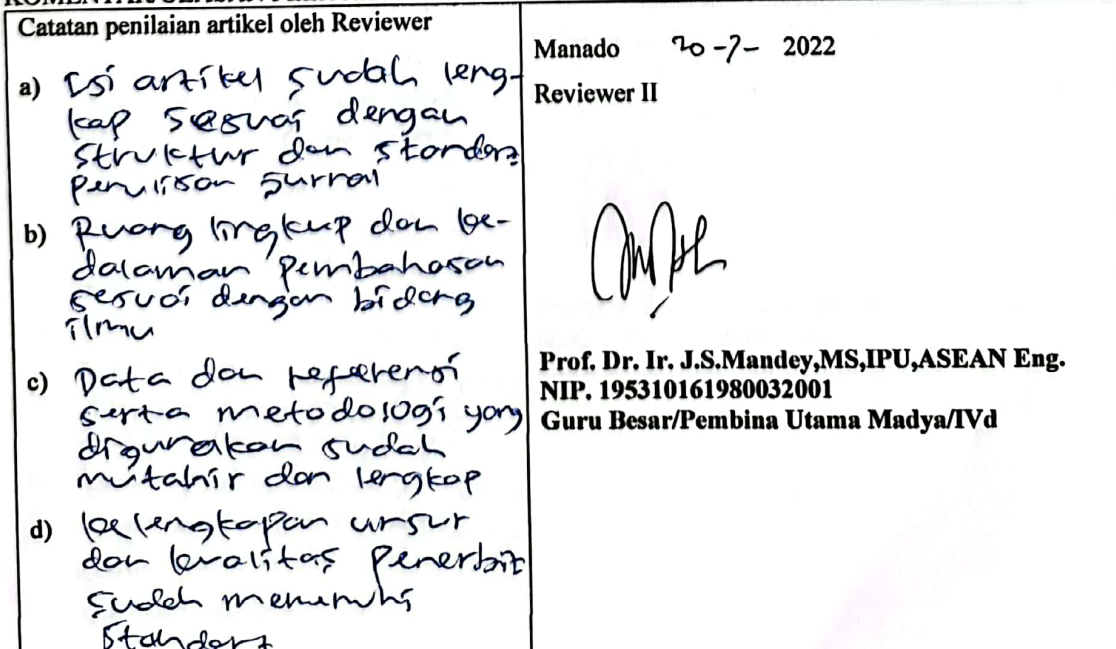 Catatan penilaian artikel oleh Reviewer
a) Isi artikel sudah leng-
kap sesuai dengan
struktur dan standar
penulisan jurnal
b) Ruang lingkup dan ke-
dalaman pembahasan
sesuai dengan bidang
ilmu
c) Data dan referensi
serta metodologi yang
digunakan sudah
mutahir dan lengkap
d) kelengkapan unsur
dan kualitas penerbit
sudah memenuhi
standar
Manado 20-7- 2022
Reviewer II
Prof. Dr. Ir. J.S.Mandey,MS,IPU,ASEAN Eng.
NIP. 195310161980032001
Guru Besar/Pembina Utama Madya/IVd